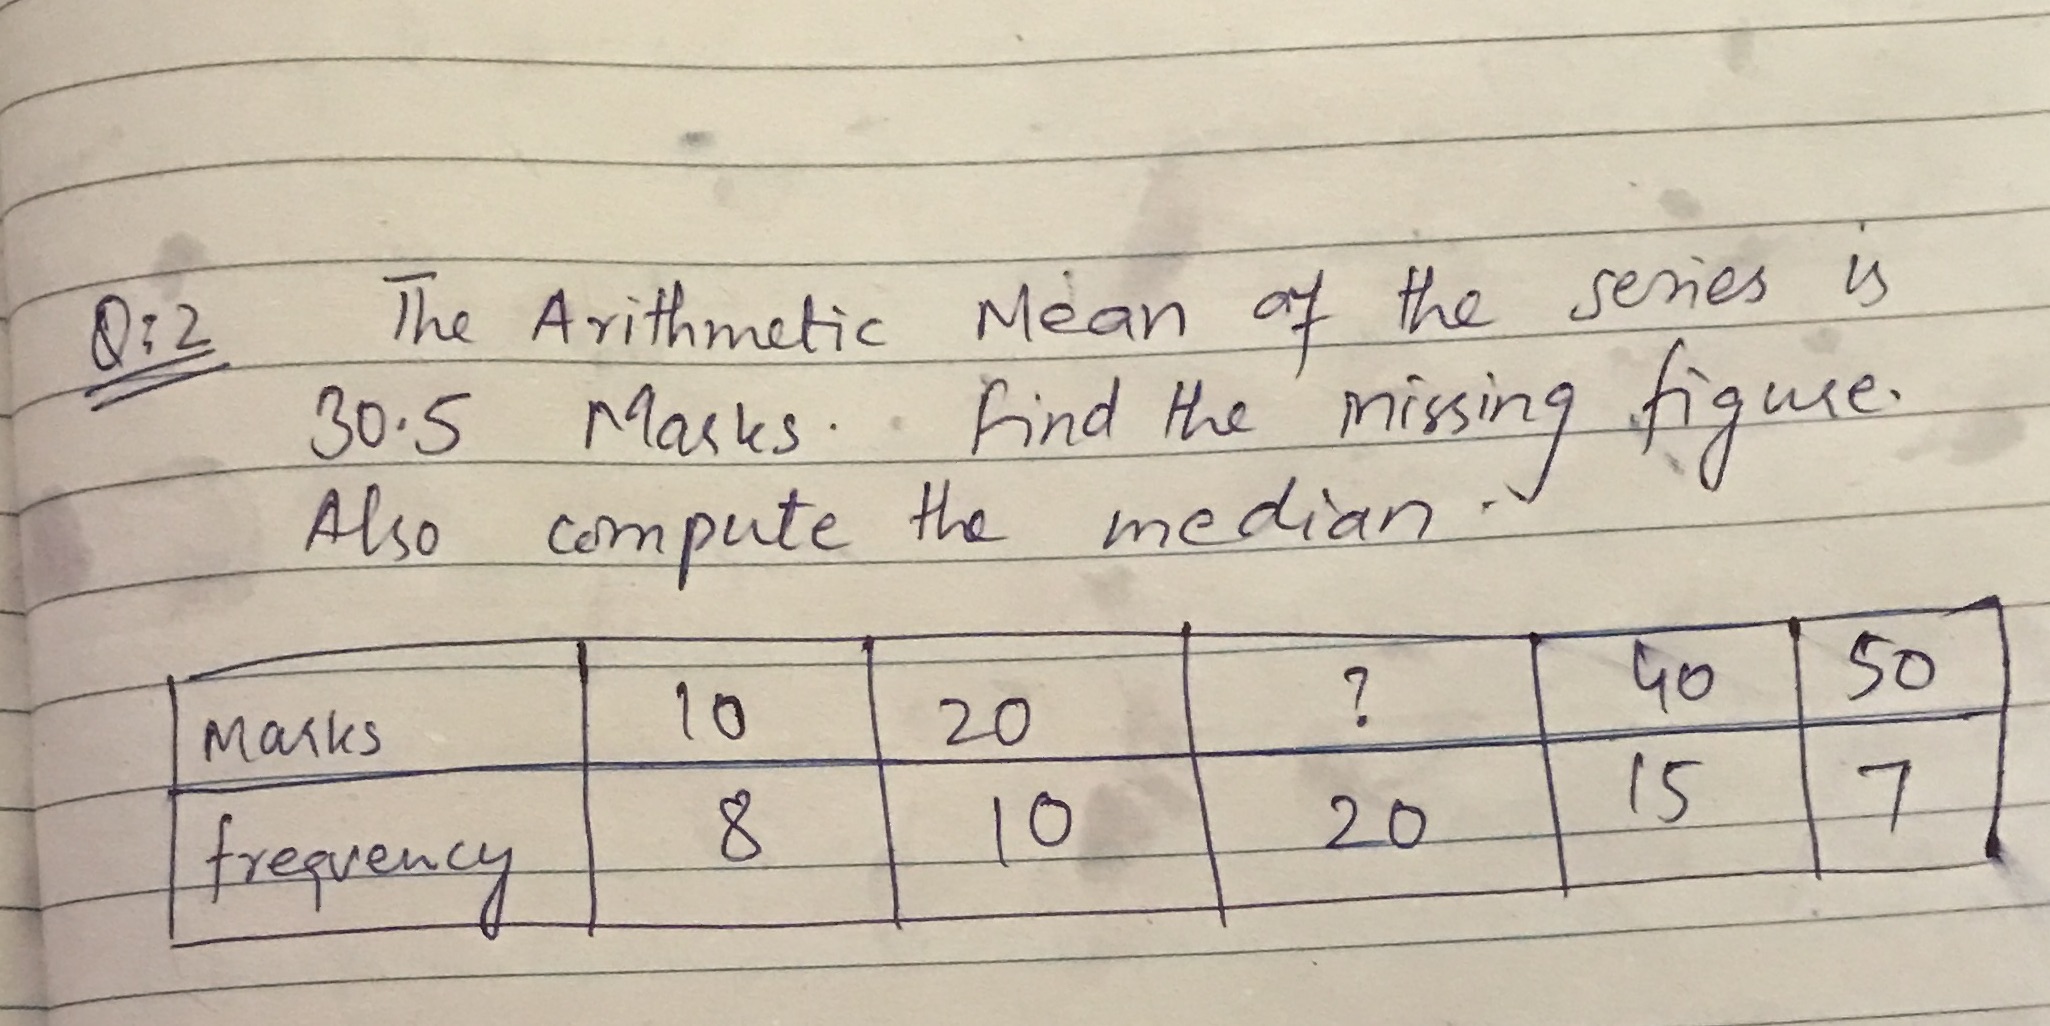 Q:2 The Arithmetic Mean of the series is
30.5 Marks. find the missing figure.
Also compute the median.
Marks 10 20 ? 40 50
frequency 8 10 20 15 7